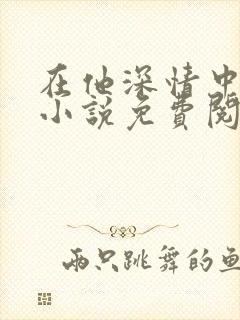 在他深情中
小说免費閱
兩只跳舞的魚